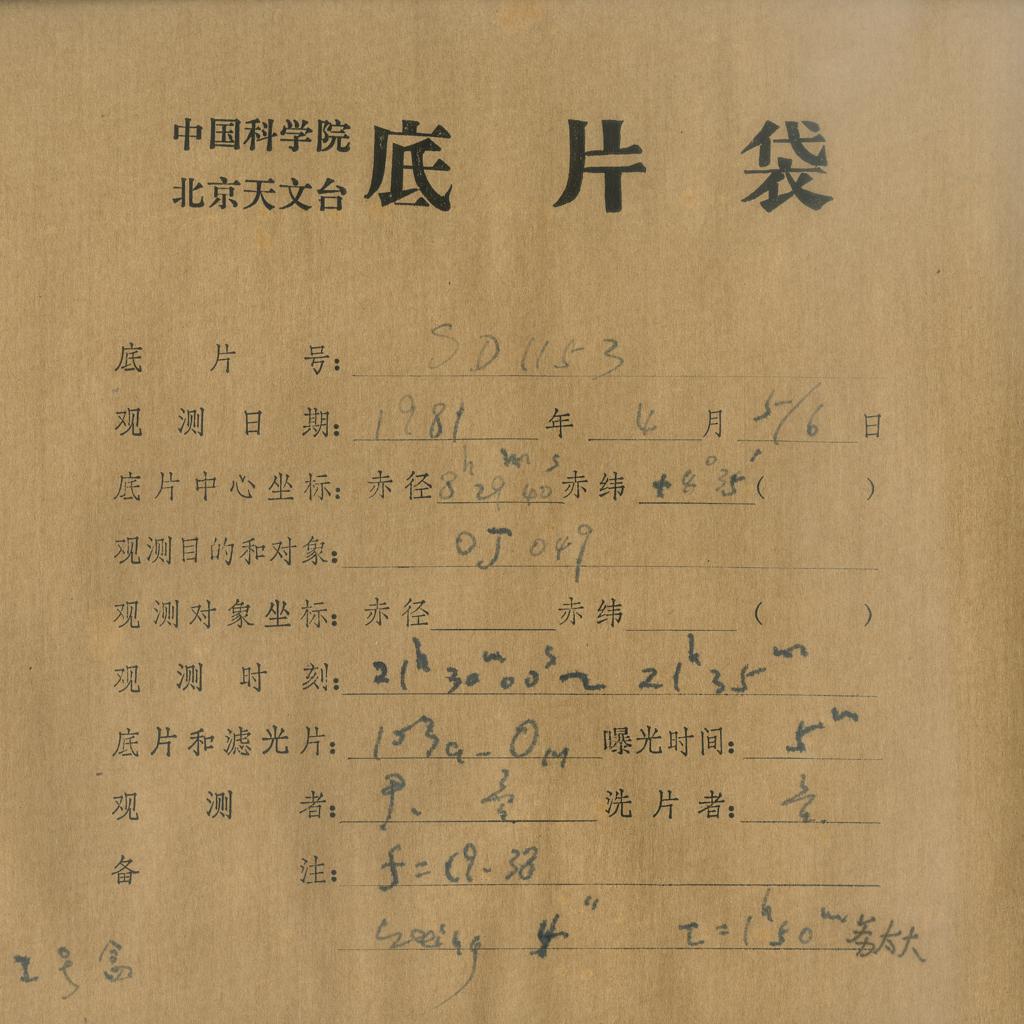 中国科学院
北京天文台
底片袋
底片号: SD1153
观测日期: 1981年4月5/6日
底片中心坐标: 赤径 8h 29m 40s 赤纬 +4° 35′ ( )
观测目的和对象: OJ 049
观测对象坐标: 赤径 赤纬 ( )
观测时刻: 21h 30m 00s ~ 21h 35m
底片和滤光片: 103a-O 曝光时间: 5m
观测者: 洗片者:
备注: f=19.38
seeing 4″ t=1h50m 太大
号盒